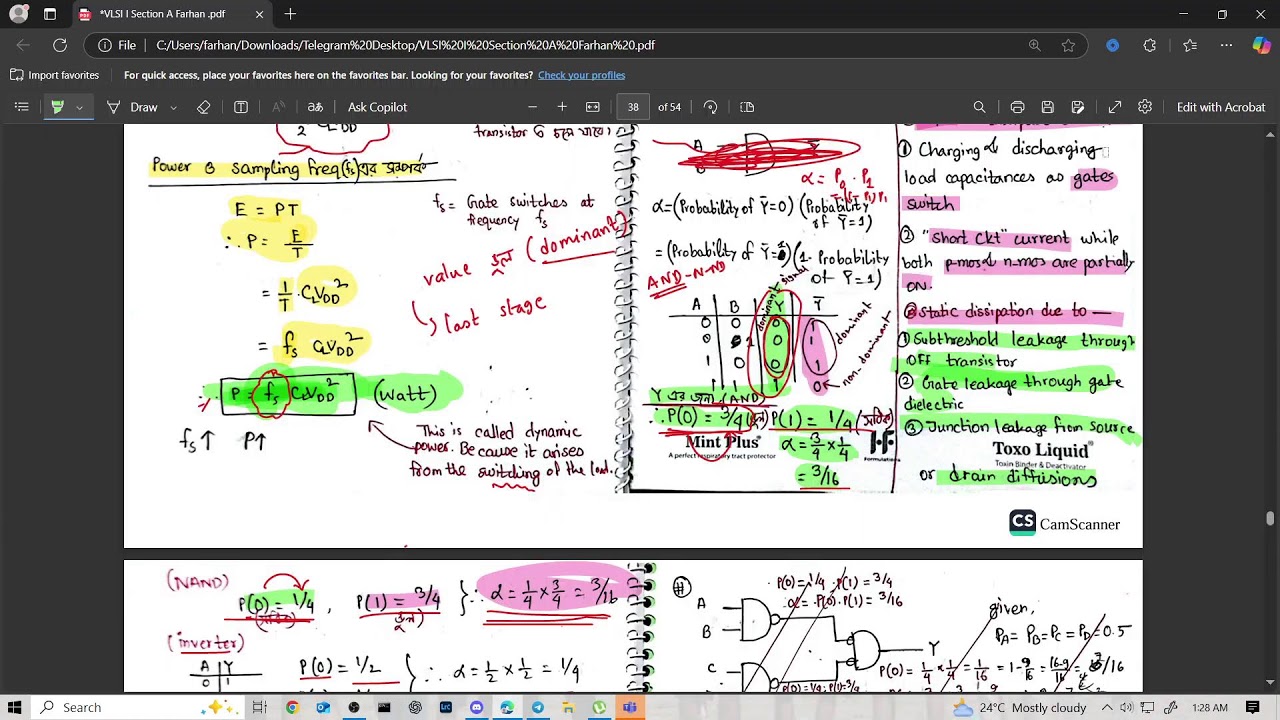 *VLSI I Section A Farhan .pdf
File
C:/Users/farhan/Downloads/Telegram%20Desktop/VLSI%20I%20Section%20A%20Farhan%20.pdf
Import favorites
For quick access, place your favorites here on the favorites bar. Looking for your favorites? Check your profiles
Draw
Ask Copilot
38 of 54
Edit with Acrobat
Power ও sampling freq(fs)
E = PT
∴ P = E/T
= 1/T · CLVDD²
= fs CLVDD²
∴ P = fs CLVDD² (Watt)
fs↑ P↑
transistor
fs = Gate switches at
frequency fs
value (dominant)
last stage
This is called dynamic
power. Because it arises
from the switching of the load.
A
α = P0 · P1
α = (Probability of Ȳ=0) (Probability
of Ȳ=1)
= (Probability of Ȳ= ) (1- Probability
of Ȳ=1)
AND-N-ND
A B Y Ȳ
0 0 0 1
0 1 0 1
1 0 0 1
1 1 1 0
dominant signal
dominant
non-dominant
Y এর জন্য (AND)
∴ P(0) = 3/4 P(1) = 1/4
α = 3/4 × 1/4
= 3/16
Mint Plus
A perfect respiratory tract protector
① Charging & discharging
load capacitances as gates
switch
② "short ckt" current while
both p-mos & n-mos are partially
ON.
Static dissipation due to —
① Subthreshold leakage through
OFF transistor
② Gate leakage through gate
dielectric
③ Junction leakage from source
Toxo Liquid
Toxin Binder & Deactivator
or drain diffusions
CS CamScanner
(NAND)
P(0) = 1/4, P(1) = 3/4 } ∴ α = 1/4 × 3/4 = 3/16
(inverter)
A Y
0 1
P(0) = 1/2
∴ α = 1/2 × 1/2 = 1/4
P(0) = 1/4 P(1) = 3/4
α = P(0) · P(1) = 3/16
A
B
C
Y
given,
PA = PB = PC = PD = 0.5
P(0) = 1/4 · P(1) = 3/4
Search
24°C Mostly cloudy
1:28 AM